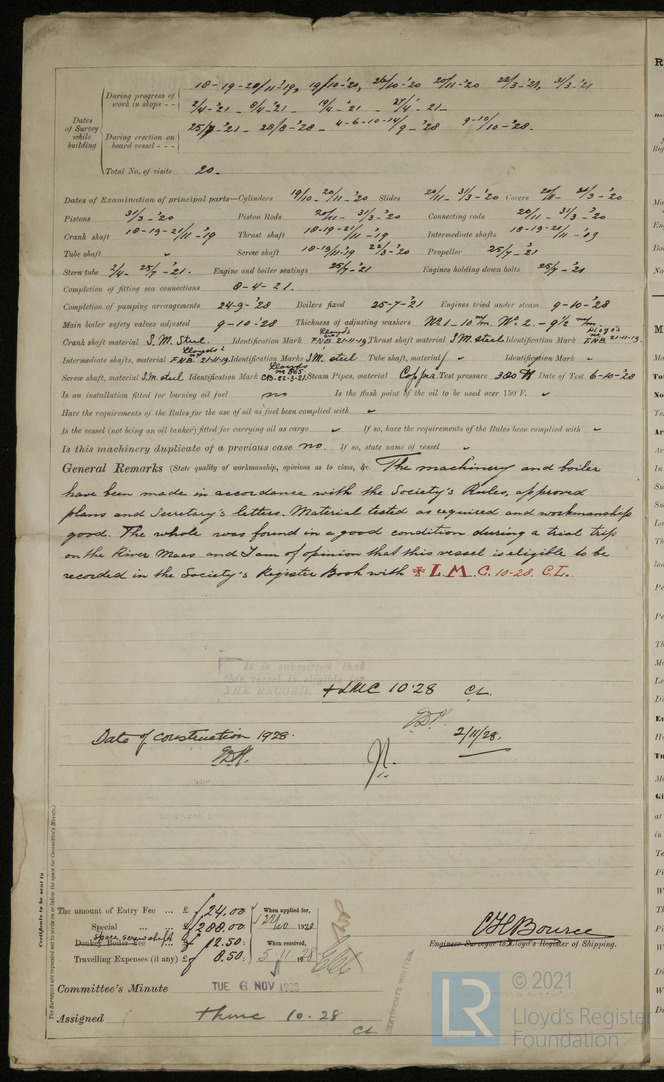 During progress of work in shops - - 18-19-20/11-'19, 19/10-'20, 26/10-'20 20/11-'20 22/3-'21, 31/3-'21
2/4-'21 - 8/4-'21 - 19/4-'21 - 27/4-'21 -
Dates of Survey while building
During erection on board vessel - - - 25/7-'21 - 28/8-'28 - 4-6-10-14/9-'28 9-10/10-'28.
Total No. of visits 20.
Dates of Examination of principal parts—Cylinders 19/10-20/11-'20 Slides 20/11-31/3-'20 Covers 20/11-31/3-'20
Pistons 31/3-'20 Piston Rods 20/11-31/3-'20 Connecting rods 20/11-31/3-'20
Crank shaft 18-19-21/11-'19 Thrust shaft 18-19-21/11-'19 Intermediate shafts 18-19-21/11-'19
Tube shaft Screw shaft 18-19/11-'19 22/3-'20 Propeller 25/7-'21
Stern tube 2/4-25/7-'21. Engine and boiler seatings 25/7-'21 Engines holding down bolts 25/7-'21
Completion of fitting sea connections 8-4-21.
Completion of pumping arrangements 24-9-'28 Boilers fixed 25-7-'21 Engines tried under steam 9-10-'28
Main boiler safety valves adjusted 9-10-'28 Thickness of adjusting washers No 1-10 m/m. No. 2-9½ m/m
Crank shaft material S.M. Steel Identification Mark Lloyd's F.N.B. 21-11-19 Thrust shaft material S.M. steel Identification Mark Lloyd's F.N.B. 21-11-19.
Intermediate shafts, material Identification Marks Lloyd's F.N.B. 21-11-19 S.M. steel Tube shaft, material Identification Mark
Screw shaft, material S.M. steel Identification Mark Lloyds No 865 CB-22-3-21. Steam Pipes, material Copper Test pressure 380 Date of Test 6-10-'28
Is an installation fitted for burning oil fuel no Is the flash point of the oil to be used over 150°F.
Have the requirements of the Rules for the use of oil as fuel been complied with
Is the vessel (not being an oil tanker) fitted for carrying oil as cargo If so, have the requirements of the Rules been complied with
Is this machinery duplicate of a previous case no. If so, state name of vessel
General Remarks (State quality of workmanship, opinions as to class, &c. The machinery and boiler
have been made in accordance with the Society's Rules, approved
plans and Secretary's letters. Material tested as required and workmanship
good. The whole was found in a good condition during a trial trip
on the River Maas and I am of opinion that this vessel is eligible to be
recorded in the Society's Register Book with ✠ L.M.C. 10-28. C.L.
It is submitted that
this vessel is eligible for
THE RECORD.
+LMC 10·28 CL.
2/11/28.
Date of construction 1928.
Certificate to be sent to
(The Surveyors are requested not to write on or below the space for Committee's Minute.)
The amount of Entry Fee ... £ 24.00 When applied for,
Special ... ... £ 288.00 1928
spare screwshaft
Donkey Boiler Fee ... £ 12.50 When received,
Travelling Expenses (if any) £ 8.50 5-11-1928
C H Bource
Engineer Surveyor to Lloyd's Register of Shipping.
Committee's Minute TUE 6 NOV 1928
Assigned + hmc 10.28
CL
CERTIFICATE WRITTEN
LR
© 2021
Lloyd's Register
Foundation